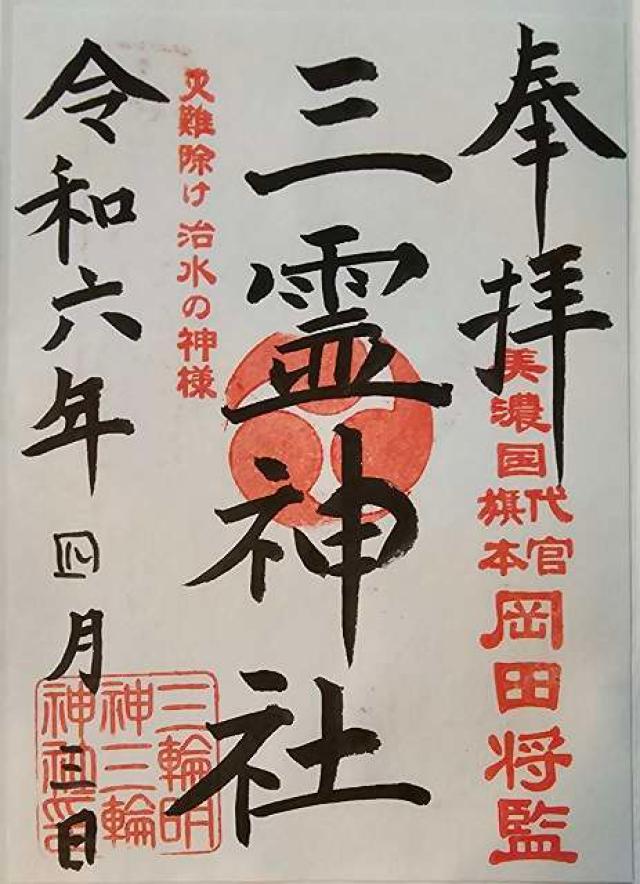 奉拝
美濃国
代官
旗本
岡田将監
三霊神社
災難除け 治水の神様
令和六年
四月三日
三輪明
神三輪
神